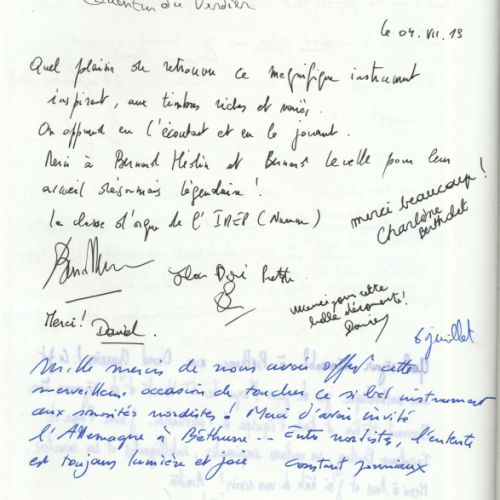 Quentin du Verdier
le 04. VII. 19
Quel plaisir de retrouver ce magnifique instrument
inspirant, aux timbres riches et variés.
On apprend en l'écoutant et en le jouant.
Merci à Bernard Hédin et Bernard Levelle pour leur
accueil désormais légendaire !
la classe d'orgue de l'IMEP (Namur)
merci beaucoup !
Charlène
Berthelet
merci pour cette
belle découverte !
Merci ! Daniel.
6 juillet
Mille mercis de nous avoir offert cette
merveilleuse occasion de toucher ce si bel instrument
aux sonorités nordistes ! Merci d'avoir invité
l'Allemagne à Béthune -- Entre nordistes, l'entente
est toujours lumière et joie